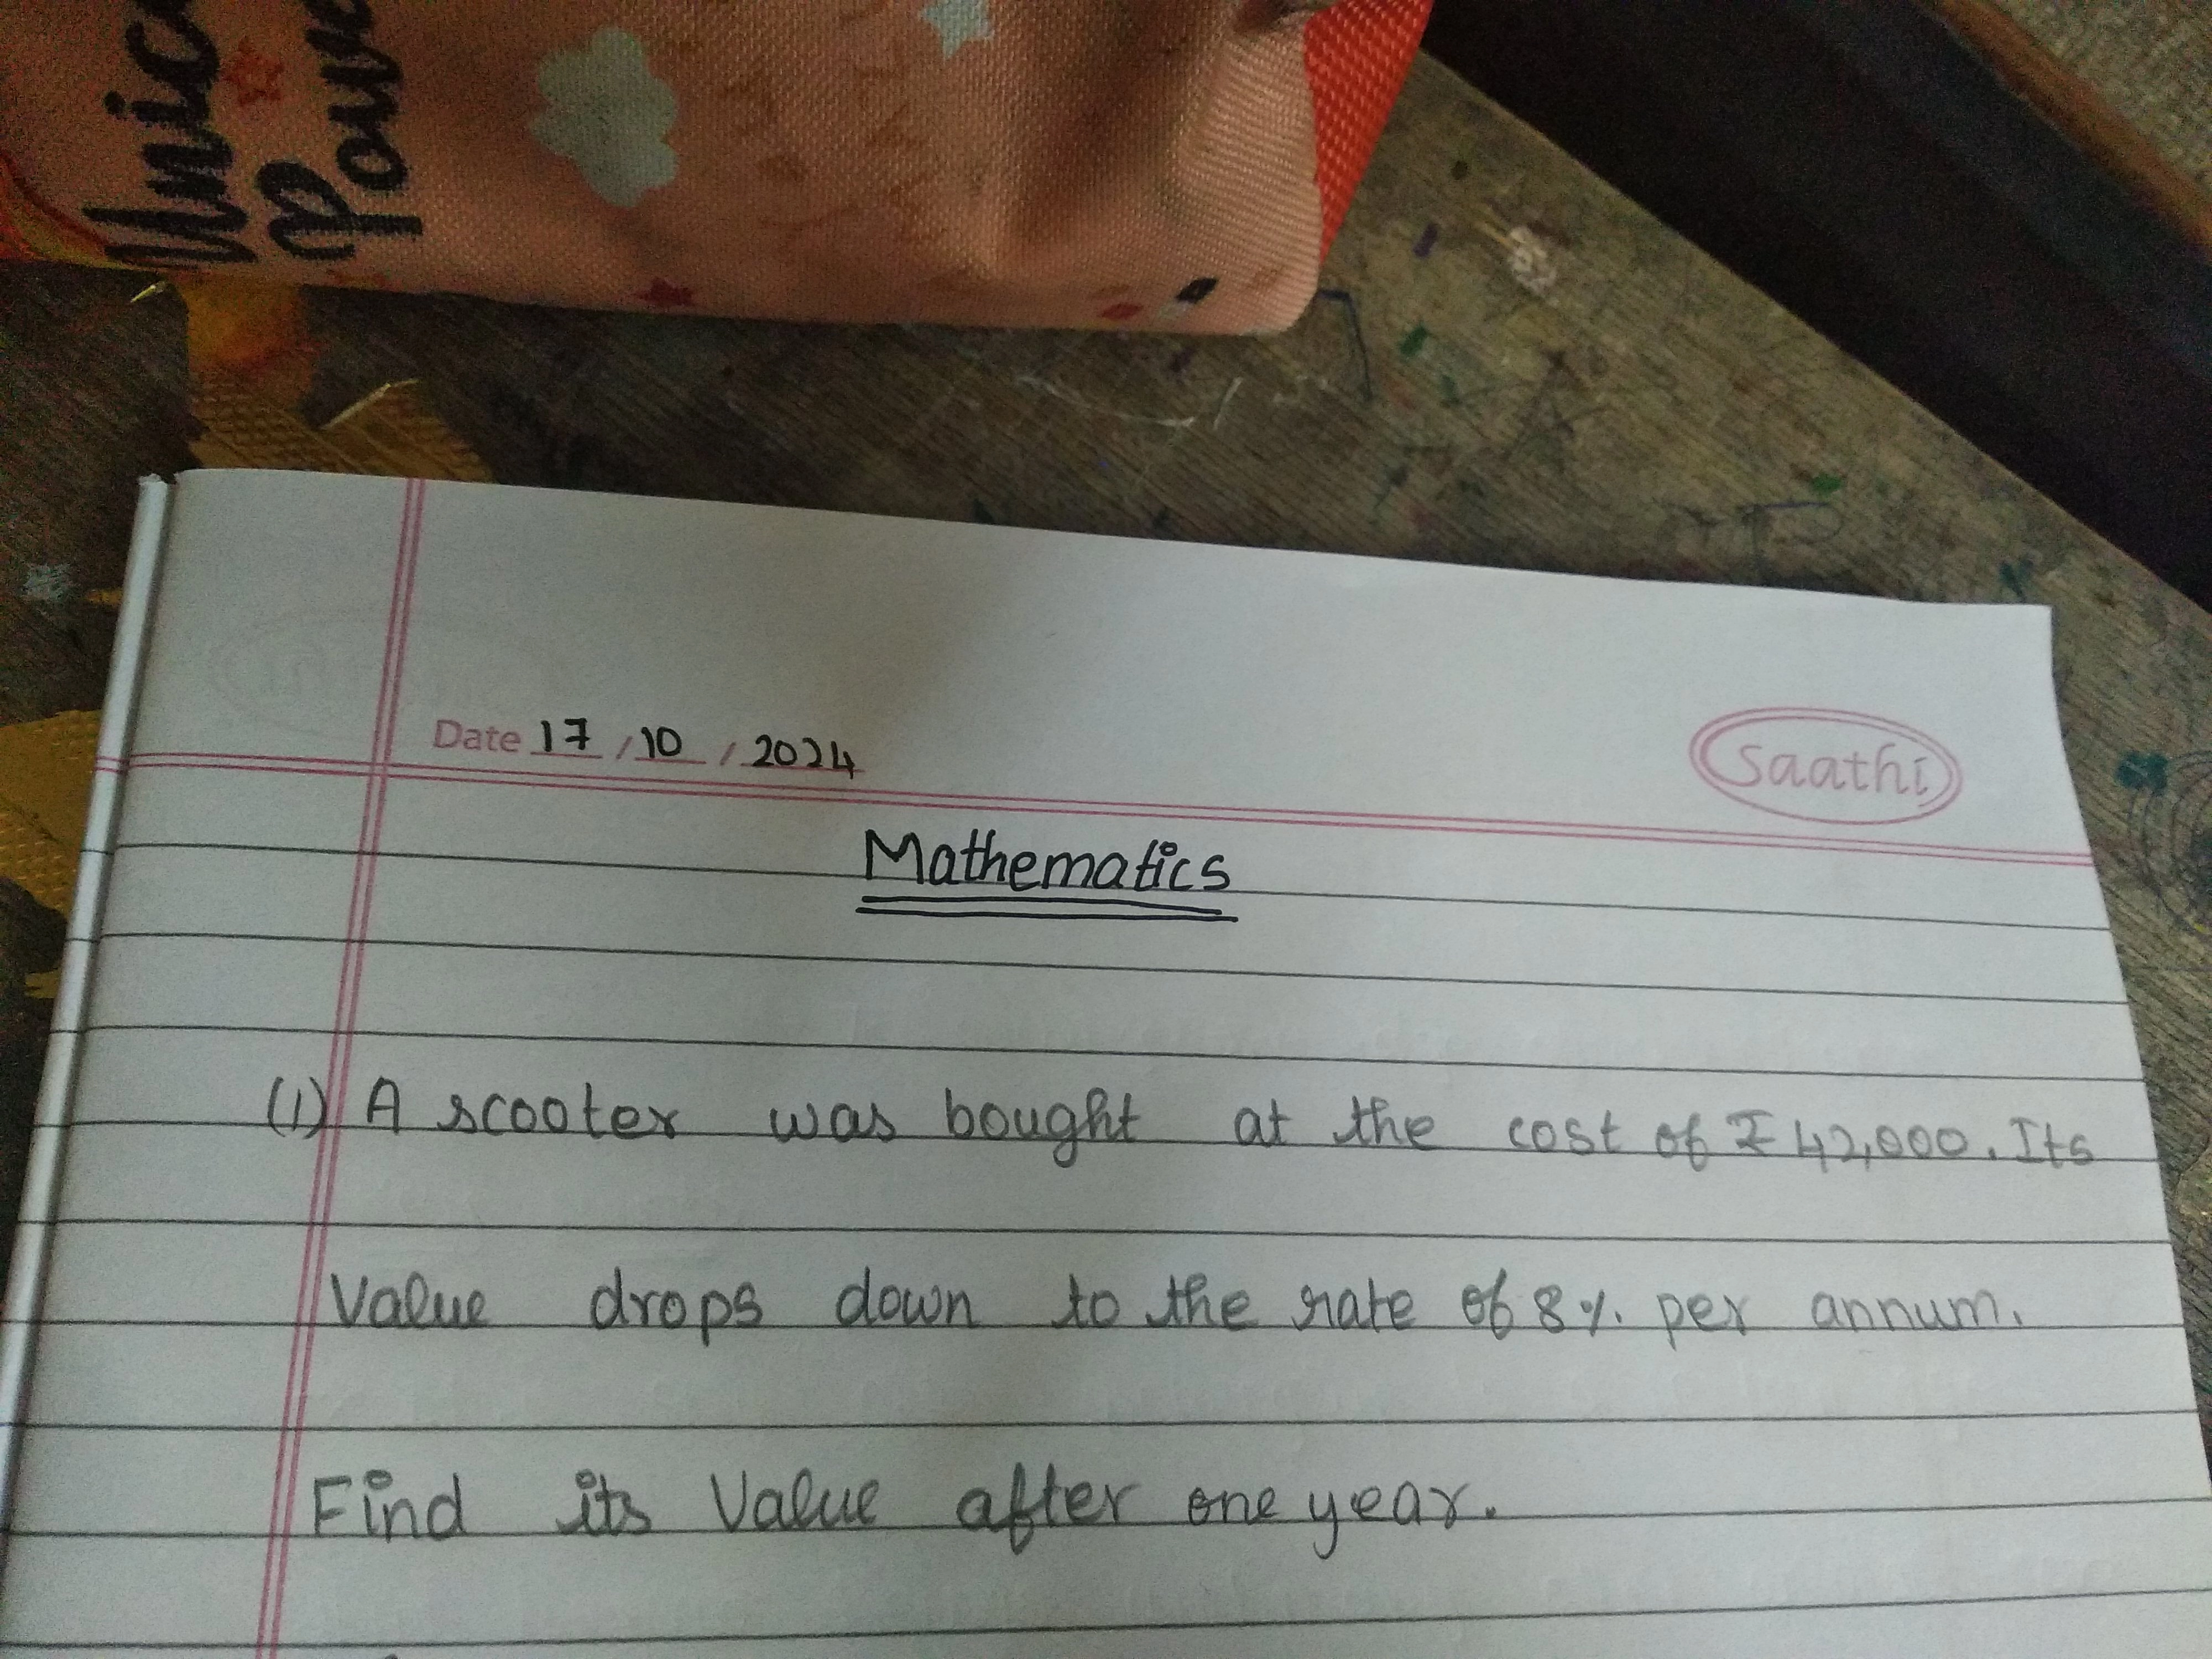 Date 17 / 10 / 2024
Saathi
Mathematics
(1) A scooter was bought at the cost of ₹ 42,000. Its
Value drops down to the rate of 8%. per annum.
Find its Value after one year.